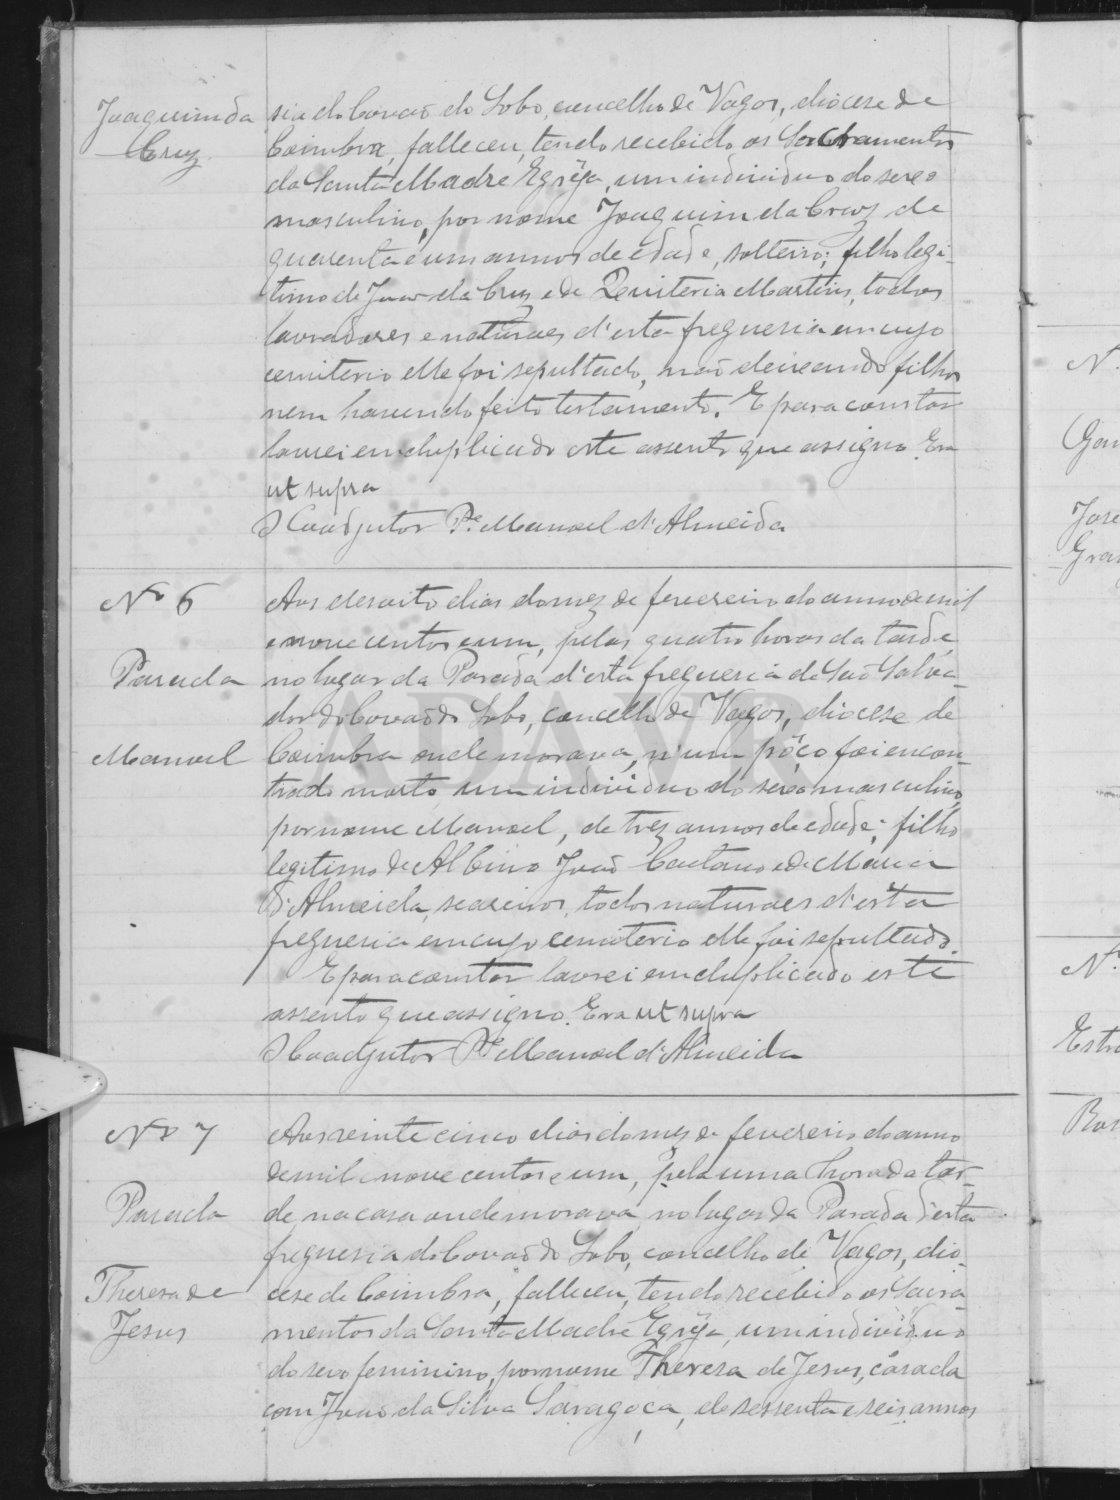 Joaquim da
Cruz
sia do Covão do Lobo, concelho de Vagos, diocese de
Coimbra, falleceu, tendo recebido os Sacramentos
da Santa Madre Egreja, um individuo do sexo
masculino, por nome Joaquim da Cruz de
quarenta e um annos de edade, solteiro; filho legi-
timo de João da Cruz e de Quiteria Martins, todos
lavradores e naturaes d'esta freguesia em cujo
cemiterio elle foi sepultado, não deixando filhos
nem havendo feito testamento. E para constar
lavrei em duplicado este assento que assigno. Era
ut supra
O Coadjutor P.e Manoel d'Almeida
Nº 6
Parada
Manoel
Aos desoito dias do mez de fevereiro do anno de mil
e nove centos e um, pelas quatro horas da tarde,
no lugar da Parada d'esta freguesia de São Salva-
dor do Covão do Lobo, concelho de Vagos, diocese de
Coimbra onde morava, n'um pôço foi encon-
trado morto um individuo do sexo masculino,
por nome Manoel, de trez annos de edade; filho
legitimo de Albino João Caetano e de Maria
d'Almeida, seareiros, todos naturaes d'esta
freguesia em cujo cemiterio elle foi sepultado.
E para constar lavrei em duplicado este
assento que assigno. Era ut supra
O Coadjutor P.e Manoel d'Almeida
Nº 7
Parada
Theresa de
Jesus
Aos vinte cinco dias do mez de fevereiro do anno
de mil e nove centos e um, pela uma hora da tar-
de, na casa onde morava, no lugar da Parada d'esta
freguesia do Covão do Lobo, concelho de Vagos, dio-
cese de Coimbra, falleceu, tendo recebido os Sacra-
mentos da Santa Madre Egreja, um individuo
do sexo feminino, por nome Theresa de Jesus, casada
com João da Silva Saragoça, de sessenta e seis annos
ADAVR
Nº
José
Nº